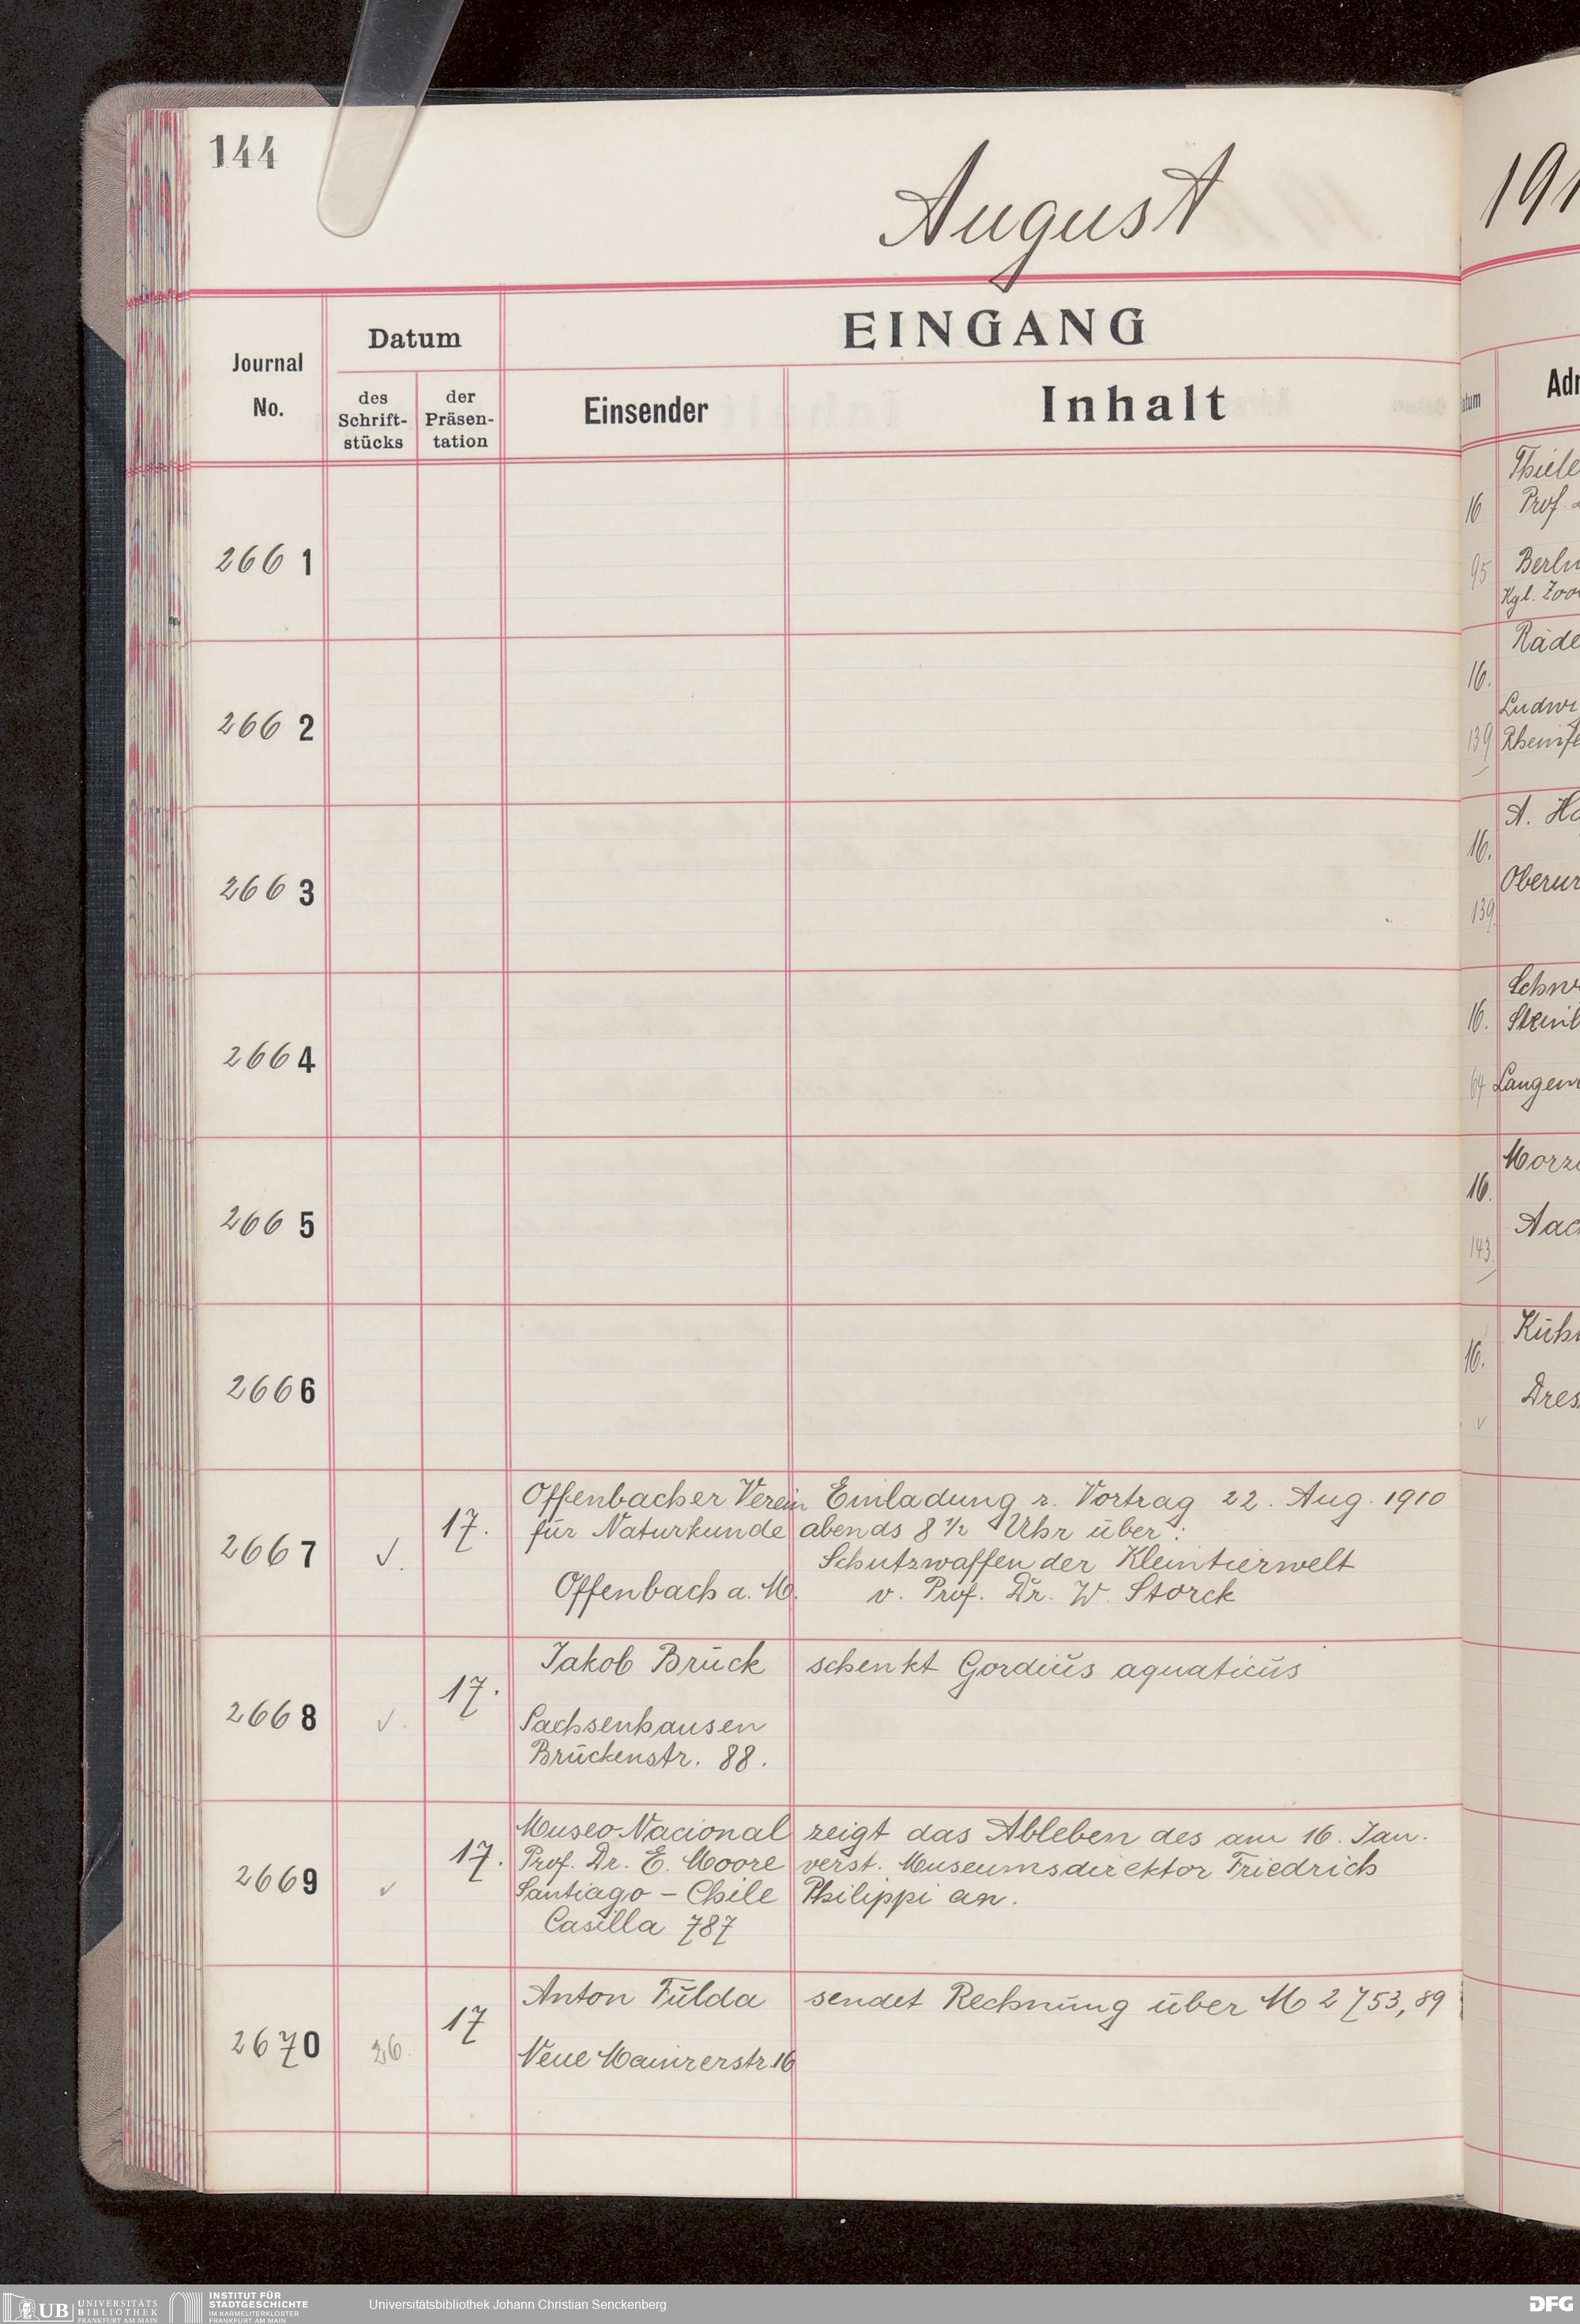 144
August
191
EINGANG
Journal
No.
Datum
des
Schrift-
stücks
der
Präsen-
tation
Einsender
Inhalt
266 1
266 2
266 3
266 4
266 5
266 6
266 7
17.
Offenbacher Verein
für Naturkunde
Offenbach a. M.
Einladung z. Vortrag 22. Aug. 1910
abends 8 1/2 Uhr über:
Schutzwaffen der Kleintierwelt
v. Prof. Dr. W. Storck
266 8
17.
Jakob Brück
Sachsenhausen
Brückenstr. 88.
schenkt Gordius aquaticus
266 9
17.
Museo Nacional
Prof. Dr. E. Moore
Santiago – Chile
Casilla 787
zeigt das Ableben des am 16. Jan.
verst. Museumsdirektor Friedrich
Philippi an.
267 0
26.
17
Anton Fulda
Neue Mainzerstr. 16
sendet Rechnung über M 2753,89
16
Prof.
95
Kgl. Zoo
16.
139
A.
16.
139
16.
64
16.
143
16.
UB UNIVERSITÄTS
BIBLIOTHEK
FRANKFURT AM MAIN
INSTITUT FÜR
STADTGESCHICHTE
IM KARMELITERKLOSTER
FRANKFURT AM MAIN
Universitätsbibliothek Johann Christian Senckenberg
DFG